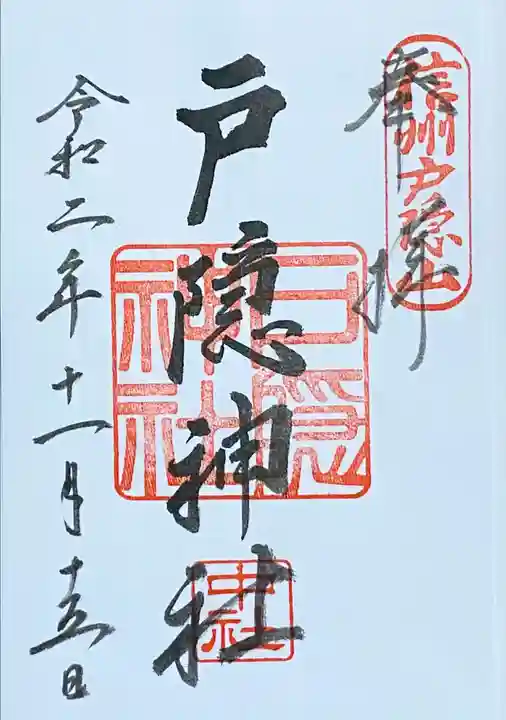 奉拝
信州戸隠山
戸隠神社
戸隠
神社
中社
令和二年十一月十五日